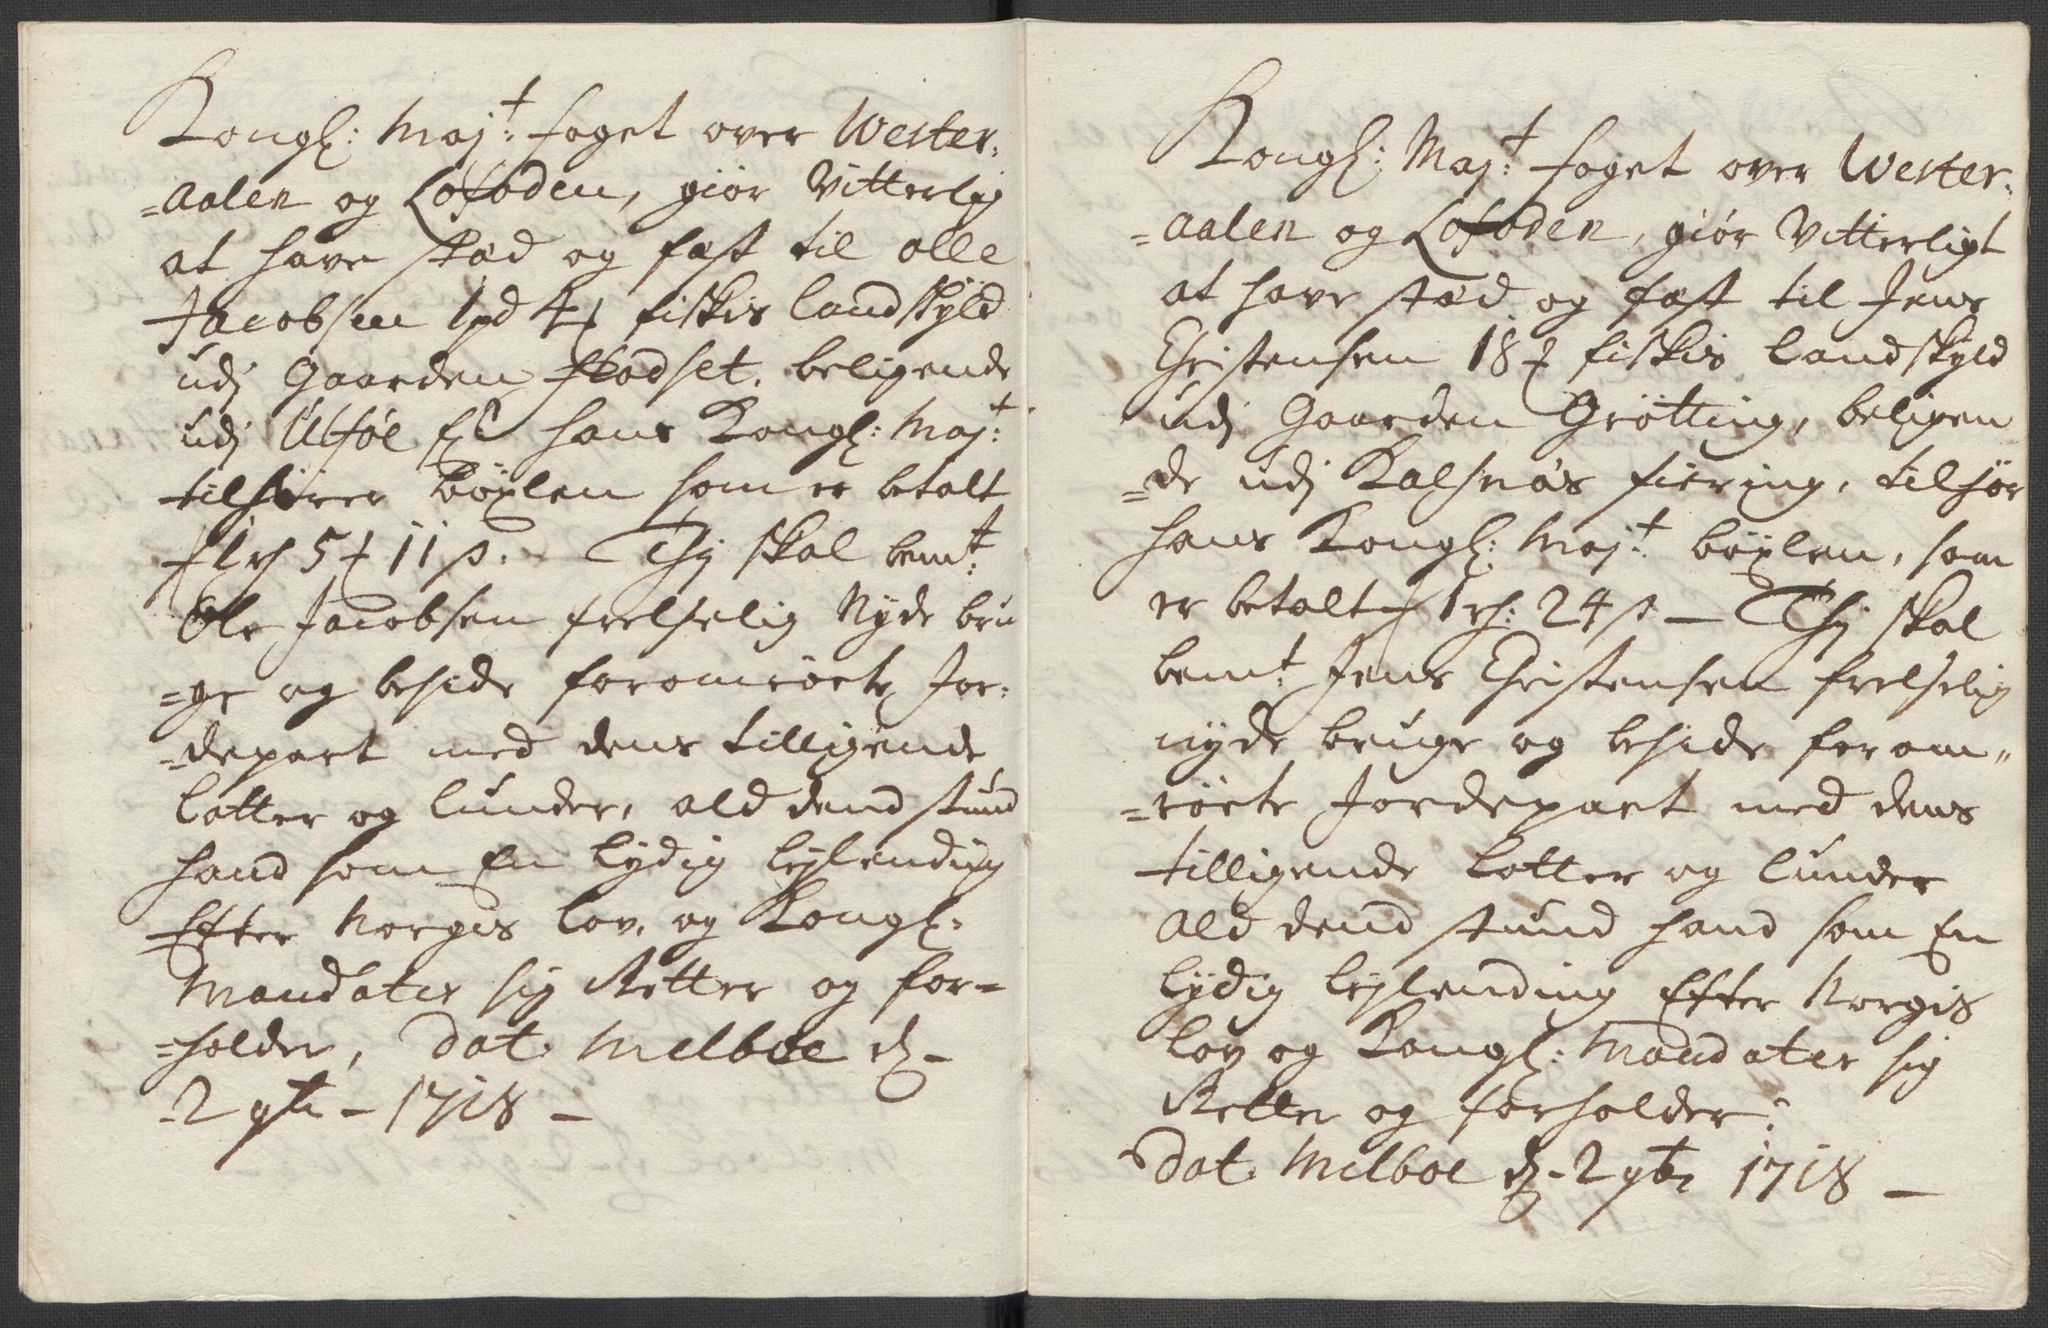 Kongl: Maj:t foget over Wester,
=aalen og Lofoden, giør Vitterlig
at have stæd og fæst til Olle
Jacobsen 1 pd 4 ℔ fiskis landskyld
udj Gaarden Stadset, beligende
udj Ulføe Fl hans Kongl: Maj:t
tilhører böxlen som er betalt
1 rd 5 ℔ 11 s. Thj skal bem:t
Ole Jacobsen frelselig Nyde bru
=ge og beside foromrörte Jor,
=depart med dens tilligende
lotter og lunder, ald dend stund
hand som En lydig lejlending
Efter Norgis lov, og Kongl:
Mandater sig Retter og for=
=holder, Dat. Melboe d
2 9br 1718
Kongl: Maj:t foget over Wester,
=aalen og Lofoden, giör Vitterligt
at have stæd og fæst til Jens
Christensen 18 ℔ fiskis landskyld
udj Gaarden Grötting, beligen
=de udj Kalsnæs fiering, tilhör
hans Kongl: Maj:t böxlen, som
er betalt 1 rd: 24 s Thj skal
bem:t Jens Christensen frelselig
nyde bruge og beside forom„
=rörte Jordepart med dens
tilligende lotter og lunder
ald dend stund hand som En
lydig lejlending Efter Norgis
lov og Kongl: Mandater sig
Retter og forholder:
Dat. Melboe d 2 9br 1718